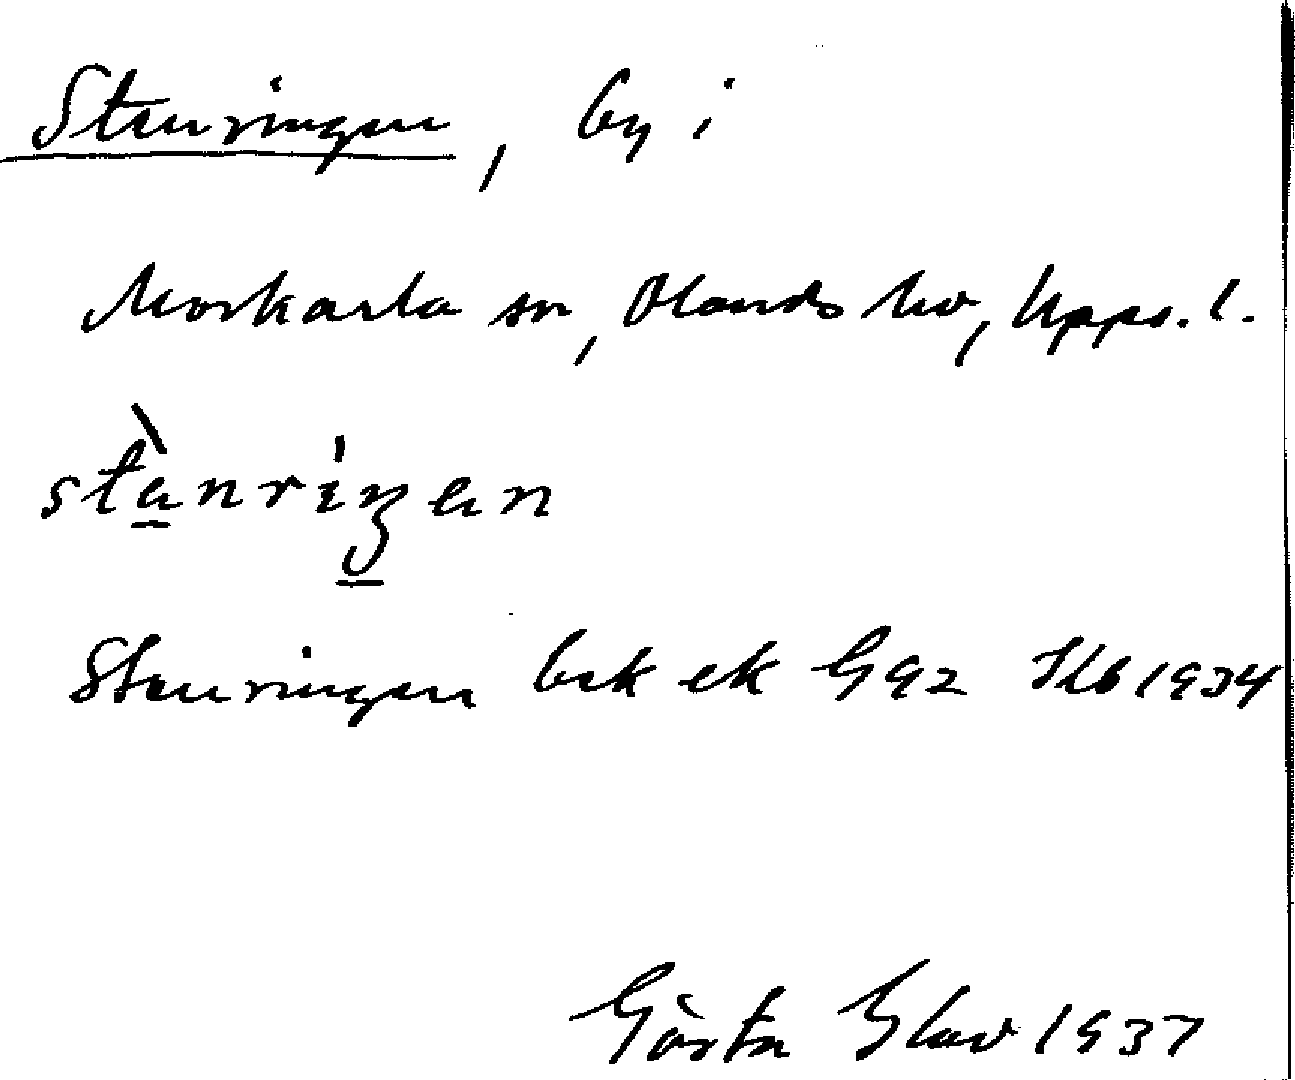 Stenringen, by i
Morkarla sn, Olands hd, Upps. l.
stànriŋen
Stenringen bsk ek G 92 Jb 1934
Gösta 1937